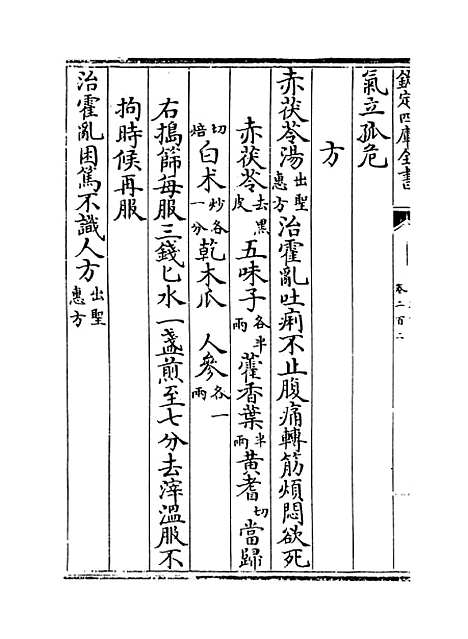 欽定四庫全書
卷二百二
氣立孤危
方
赤茯苓湯出聖惠方治霍亂吐痢不止腹痛轉筋煩悶欲死
赤茯苓去黑皮五味子各半兩藿香葉半兩黃耆切當歸
切焙白术炒各一分乾木瓜人參各一兩
右搗篩每服三錢匕水一盞煎至七分去滓溫服不
拘時候再服
治霍亂困篤不識人方出聖惠方